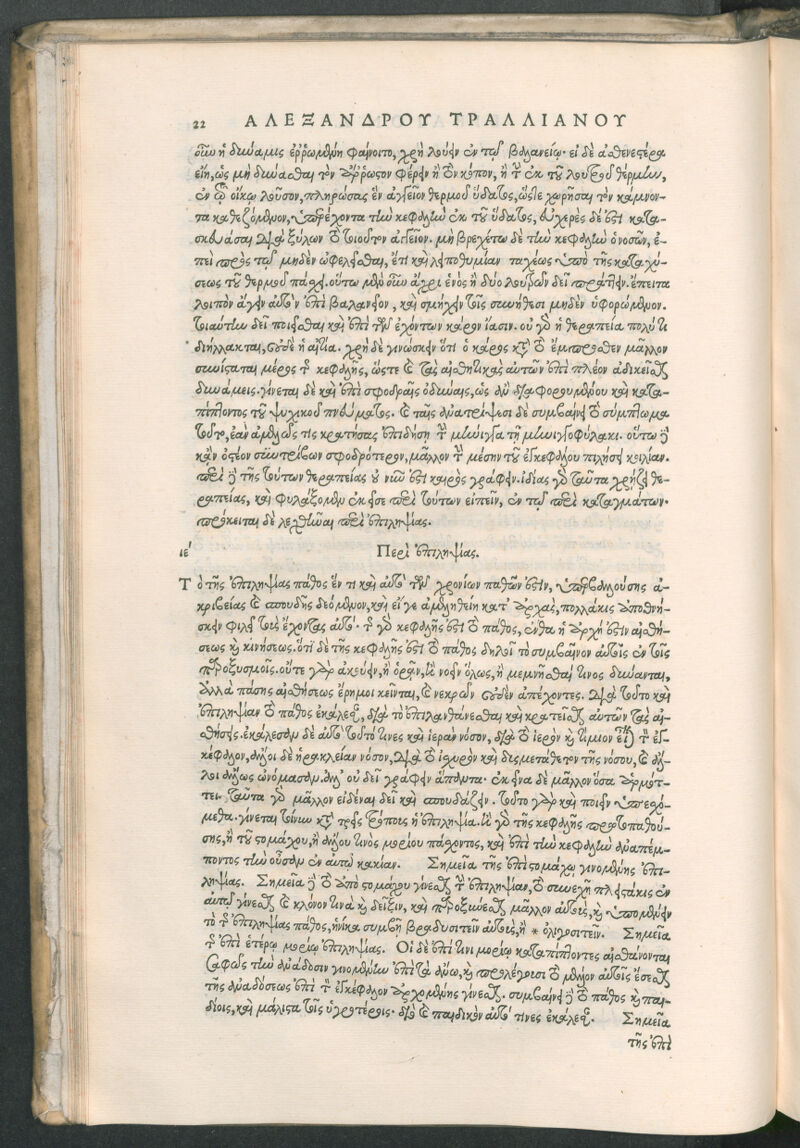 22 ΑΛΕΞΑΝΔΡΟΥ ΤΡΑΛΛΙΑΝΟΥ
οὖν ἡ δύναμις ἐῤῥωμένη φαίνοιτο, χρὴ λούειν ἐν τῷ βαλανείῳ· εἰ δὲ ἀσθενεστέρα
εἴη, ὡς μὴ δύνασθαι τὸν ἄῤῥωστον φέρειν ἢ τὸν κόπον, ἢ τὴν ἐκ τοῦ λουτροῦ θέρμην,
ἐν ᾧ οἴκῳ λοῦσον, πληρώσας ἓν ἀγγεῖον θερμοῦ ὕδατος, ὥστε χωρῆσαι τὸν κάμνον-
τα καθεζόμενον, ὑπερέχοντα τὴν κεφαλὴν ἐκ τοῦ ὕδατος, εὐχερὲς δέ ἐστι κατα-
σκευάσαι διὰ ξύλων τὸ τοιοῦτον ἀγγεῖον. μὴ βρεχέτω δὲ τὴν κεφαλὴν ὁ νοσῶν, ἐ-
πεὶ πρὸς τῷ μηδὲν ὠφελεῖσθαι, ἔτι καὶ λειποθυμίαν ταχέως ὑπὸ τῆς καταχύ-
σεως τοῦ θερμοῦ πάσχει. οὕτω μὲν οὖν ἄχρι ἑνὸς ἢ δύο λουτρῶν δεῖ πράττειν. ἔπειτα
λοιπὸν ἄγειν αὐτὸν ἐπὶ βαλανεῖον, καὶ σμήχειν τοῖς συνήθεσι μηδὲν ὑφορώμενον.
τοιαύτην δεῖ ποιεῖσθαι καὶ ἐπὶ τῶν ἐχόντων κάρον ἴασιν. οὐ γὰρ ἡ θεραπεία πολύ τι
διήλλακται, οὐδὲ ἡ αἰτία. χρὴ δὲ γινώσκειν ὅτι ὁ κάρος κατὰ τὸ ἔμπροσθεν μᾶλλον
συνίσταται μέρος τῆς κεφαλῆς, ὥστε καὶ τὰς αἰσθητικὰς αὐτῶν ἐπὶ πλέον ἀδικεῖσθαι
δυνάμεις. γίνεται δὲ καὶ ἐπὶ σφοδραῖς ὀδύναις, ὡς ἂν διαφορουμένου καὶ κατα-
πίπτοντος τοῦ ψυχικοῦ πνεύματος. καὶ ταῖς ἀνατρήσεσι δὲ συμβαίνει τὸ σύμπτωμα
τοῦτο, ἐὰν ἀμελῶς τις κρατήσας ἐπιδήσῃ τὴν μήνιγγα τῇ μηνιγγοφύλακι. οὕτω δὲ
κἂν ὀστέον συντρίβων σφοδρότερον, μᾶλλον τὴν μέσην τοῦ ἐγκεφάλου πιλήσῃ κοιλίαν.
περὶ δὲ τῆς τούτων θεραπείας οὐ νῦν ἐστι καιρὸς γράφειν. ἰδίας γὰρ ταῦτα χρῄζει θε-
ραπείας, καὶ φυλάξομεν ἐκεῖσε περὶ τούτων εἰπεῖν, ἐν τῷ περὶ καταγμάτων.
πρόκειται δὲ λεχθῆναι περὶ ἐπιληψίας.
ιε΄ Περὶ ἐπιληψίας.
Τὸ τῆς ἐπιληψίας πάθος ἕν τι καὶ αὐτὸ τῶν χρονίων παθῶν ἐστιν, ὑπερβαλλούσης ἀ-
κριβείας καὶ σπουδῆς δεόμενον, καὶ εἴγε ἀμεληθείη κατ' ἀρχὰς, πολλάκις ἀποθνή-
σκειν φιλεῖ τοὺς ἔχοντας αὐτό. τῆς γὰρ κεφαλῆς ἐστι τὸ πάθος, ἔνθα ἡ ἀρχή ἐστιν αἰσθή-
σεως καὶ κινήσεως. ὅτι δὲ τῆς κεφαλῆς ἐστι τὸ πάθος δηλοῖ τὸ συμβαῖνον αὐτοῖς ἐν τοῖς
παροξυσμοῖς. οὔτε γὰρ ἀκούειν, ἢ ὁρᾶν, ἢ νοεῖν ὅλως, ἢ μεμνῆσθαί τινος δύνανται,
ἀλλὰ πάσης αἰσθήσεως ἔρημοι κεῖνται, καὶ νεκρῶν οὐδὲν ἀπέχοντες. διὰ τοῦτο καὶ
ἐπιληψίαν τὸ πάθος ἐκάλεσαν, διὰ τὸ ἐπιλανθάνεσθαι καὶ κρατεῖσθαι αὐτῶν τὰς αἰ-
σθήσεις. ἐκάλεσαν δὲ αὐτὸ τοῦτό τινες καὶ ἱερὰν νόσον, διὰ τὸ ἱερὸν καὶ τίμιον εἶναι τὸν ἐγ-
κέφαλον, ἄλλοι δὲ ἡρακλείαν νόσον, διὰ τὸ ἰσχυρὸν καὶ δυσμετάθετον τῆς νόσου, καὶ ἄλ-
λοι ἄλλως ὠνόμασαν. ἀλλ' οὐ δεῖ γράφειν ἅπαντα. ἐκεῖνα δὲ μᾶλλον ὅσα ἁρμότ-
τει. ταῦτα γὰρ μᾶλλον εἰδέναι δεῖ καὶ σπουδάζειν. τοῦτο γὰρ καὶ ποιεῖν ὑπεσχό-
μεθα. γίνεται τοίνυν κατὰ τρεῖς τρόπους ἡ ἐπιληψία. ἢ γὰρ τῆς κεφαλῆς πρωτοπαθού-
σης, ἢ τοῦ στομάχου, ἢ ἄλλου τινὸς μορίου πάσχοντος, καὶ ἐπὶ τὴν κεφαλὴν ἀναπέμ-
ποντος τὴν οὖσαν ἐν αὐτῷ κακίαν. Σημεῖα τῆς ἐπὶ στομάχῳ γινομένης ἐπι-
ληψίας. Σημεῖα δὲ τοῦ ἀπὸ στομάχου γίνεσθαι τὴν ἐπιληψίαν, τὸ συνεχῆ πλειστάκις ἐν
αὐτῷ γίνεσθαι καὶ κλόνον τινὰ καὶ δεῖξιν, καὶ παροξύνεσθαι μᾶλλον αὐτοῖς, καὶ ὑπομένειν
τὸ τῆς ἐπιληψίας πάθος, ἡνίκα συμβῇ βραδυσιτεῖν αὐτοῖς, ἢ * ὀλιγοσιτεῖν. Σημεῖα
τῆς ἐπὶ ἑτέρῳ μορίῳ ἐπιληψίας. Οἱ δὲ ἐπί τινι μορίῳ καταπίπτοντες αἰσθάνονται
σαφῶς τὴν ἀνάδοσιν γινομένην ἐπὶ τὰ ἄνω, καὶ προλέγουσι τὸ μέλλον αὐτοῖς ἔσεσθαι
τῆς ἀναδόσεως ἐπὶ τὸν ἐγκέφαλον ἀρχομένης γίνεσθαι. συμβαίνει δὲ τὸ πάθος καὶ παι-
δίοις, καὶ μάλιστα τοῖς ὑγροτέροις. διὸ καὶ παιδικὸν αὐτό τινες ἐκάλεσαν. Σημεῖα
τῆς ἐπὶ